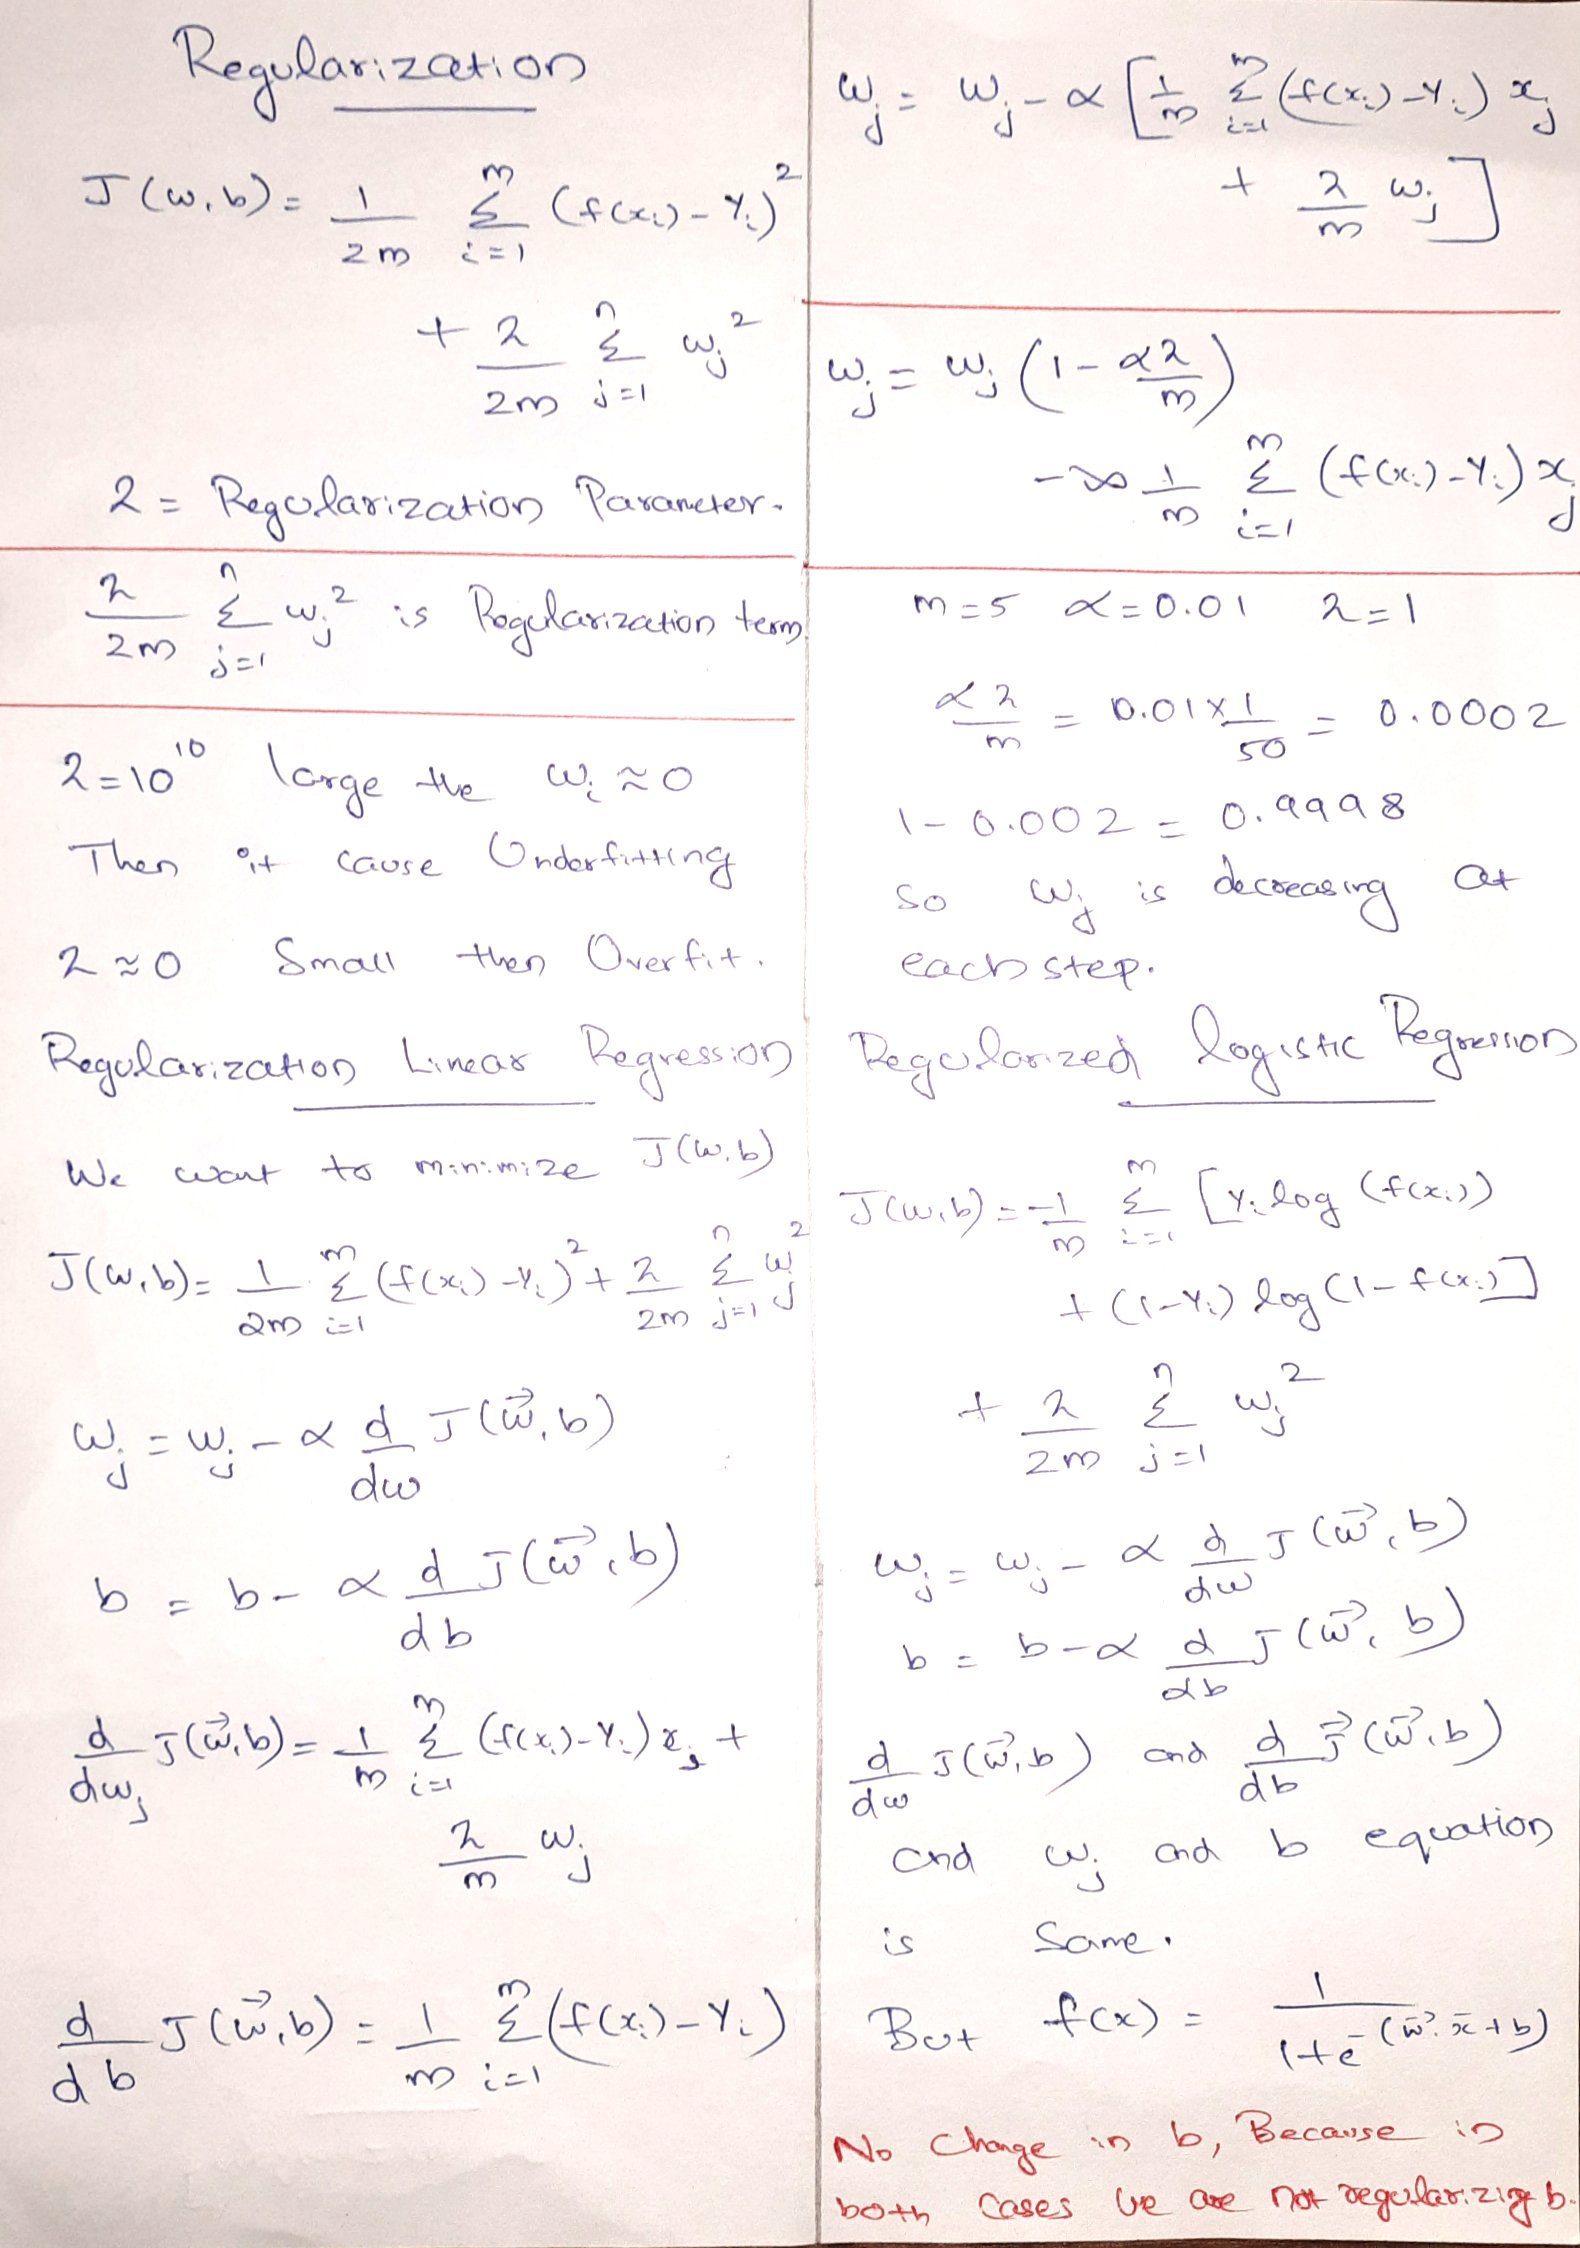 Regularization
J(w,b) = 1/2m Σ_{i=1}^{m} (f(x_i) - Y_i)^2
+ λ/2m Σ_{j=1}^{n} w_j^2
λ = Regularization Parameter.
λ/2m Σ_{j=1}^{n} w_j^2 is Regularization term
λ = 10^10 large the w_i ≈ 0
Then it cause Underfitting
λ ≈ 0 Small then Overfit.
Regularization Linear Regression
We want to minimize J(w,b)
J(w,b) = 1/2m Σ_{i=1}^{m} (f(x_i) - Y_i)^2 + λ/2m Σ_{j=1}^{n} w_j^2
w_j = w_j - α d/dw J(w⃗,b)
b = b - α d/db J(w⃗,b)
d/dw_j J(w⃗,b) = 1/m Σ_{i=1}^{m} (f(x_i) - Y_i) x_j +
λ/m w_j
d/db J(w⃗,b) = 1/m Σ_{i=1}^{m} (f(x_i) - Y_i)
w_j = w_j - α [1/m Σ_{i=1}^{m} (f(x_i) - Y_i) x_j
+ λ/m w_j]
w_j = w_j (1 - αλ/m)
- α 1/m Σ_{i=1}^{m} (f(x_i) - Y_i) x_j
m = 5 α = 0.01 λ = 1
αλ/m = 0.01 × 1/50 = 0.0002
1 - 0.002 = 0.9998
So w_j is decreasing at
each step.
Regularized logistic Regression
J(w,b) = -1/m Σ_{i=1}^{m} [Y_i log (f(x_i))
+ (1-Y_i) log (1 - f(x_i)]
+ λ/2m Σ_{j=1}^{n} w_j^2
w_j = w_j - α d/dw J(w⃗,b)
b = b - α d/db J(w⃗,b)
d/dw J(w⃗,b) and d/db J⃗(w⃗,b)
and w_j and b equation
is Same.
But f(x) = 1/1+e^-(w⃗.x̄+b)
No Change in b, Because in
both Cases We are not regularizing b.